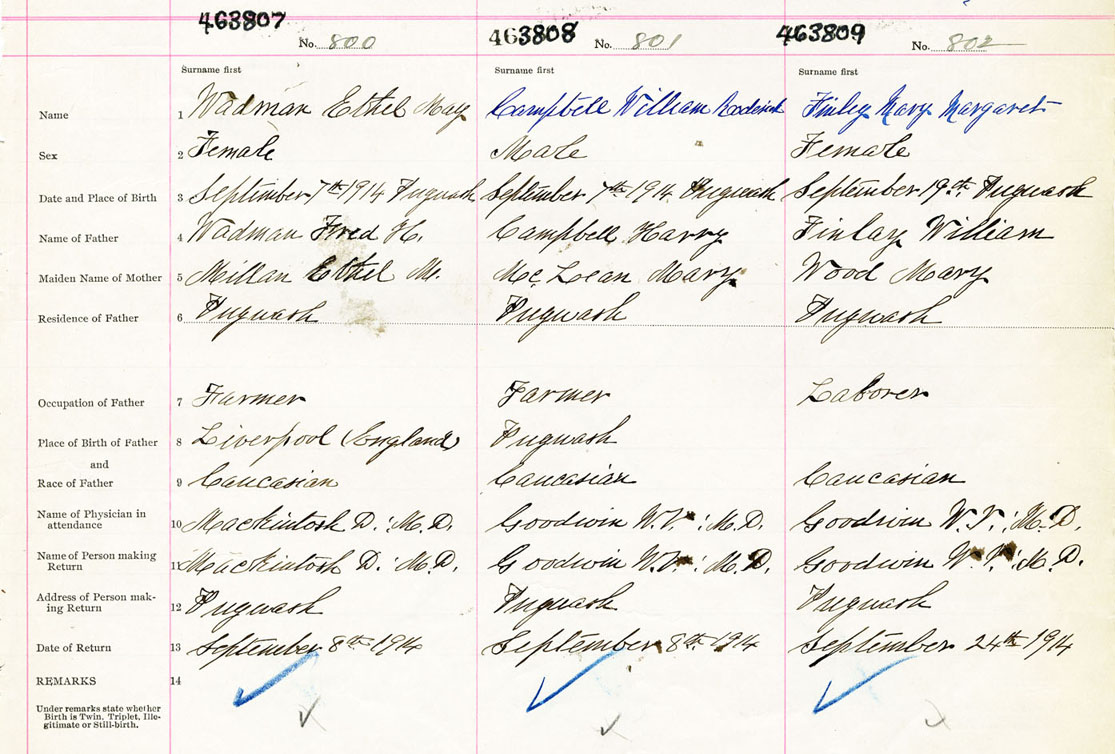 463807 463808 463809
No. 800 No. 801 No. 802
Surname first Surname first Surname first
Name 1 Wadman Ethel May Campbell William Roderick Finley Mary Margaret
Sex 2 Female Male Female
Date and Place of Birth 3 September 7th 1914 Pugwash September 7th 1914 Pugwash September 19th Pugwash
Name of Father 4 Wadman Fred H. Campbell Harry Finlay William
Maiden Name of Mother 5 Millan Ethel M. Mc Lean Mary Wood Mary
Residence of Father 6 Pugwash Pugwash Pugwash
Occupation of Father 7 Farmer Farmer Laborer
Place of Birth of Father 8 Liverpool (England) Pugwash
and
Race of Father 9 Caucasian Caucasian Caucasian
Name of Physician in
attendance 10 Mackintosh D. : M.D. Goodwin : M.D. Goodwin : M.D.
Name of Person making
Return 11 Mackintosh D. : M.D. Goodwin : M.D. Goodwin : M.D.
Address of Person mak-
ing Return 12 Pugwash Pugwash Pugwash
Date of Return 13 September 8th 1914 September 8th 1914 September 24th 1914
REMARKS 14
Under remarks state whether
Birth is Twin. Triplet, Ille-
gitimate or Still-birth.